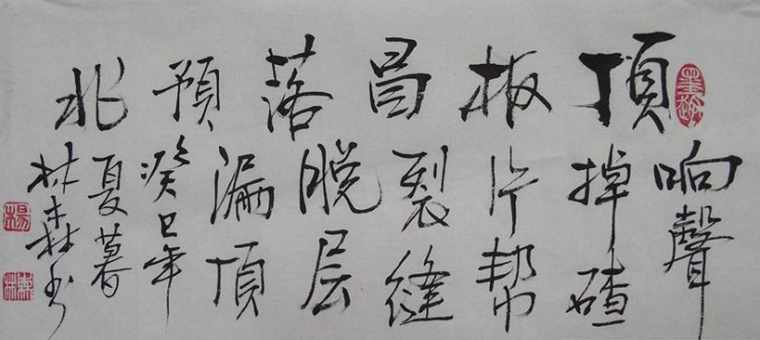 頂板冒落預兆
响聲
掉碴
片幫
裂縫
脫层
漏頂
癸巳年
夏暮
书